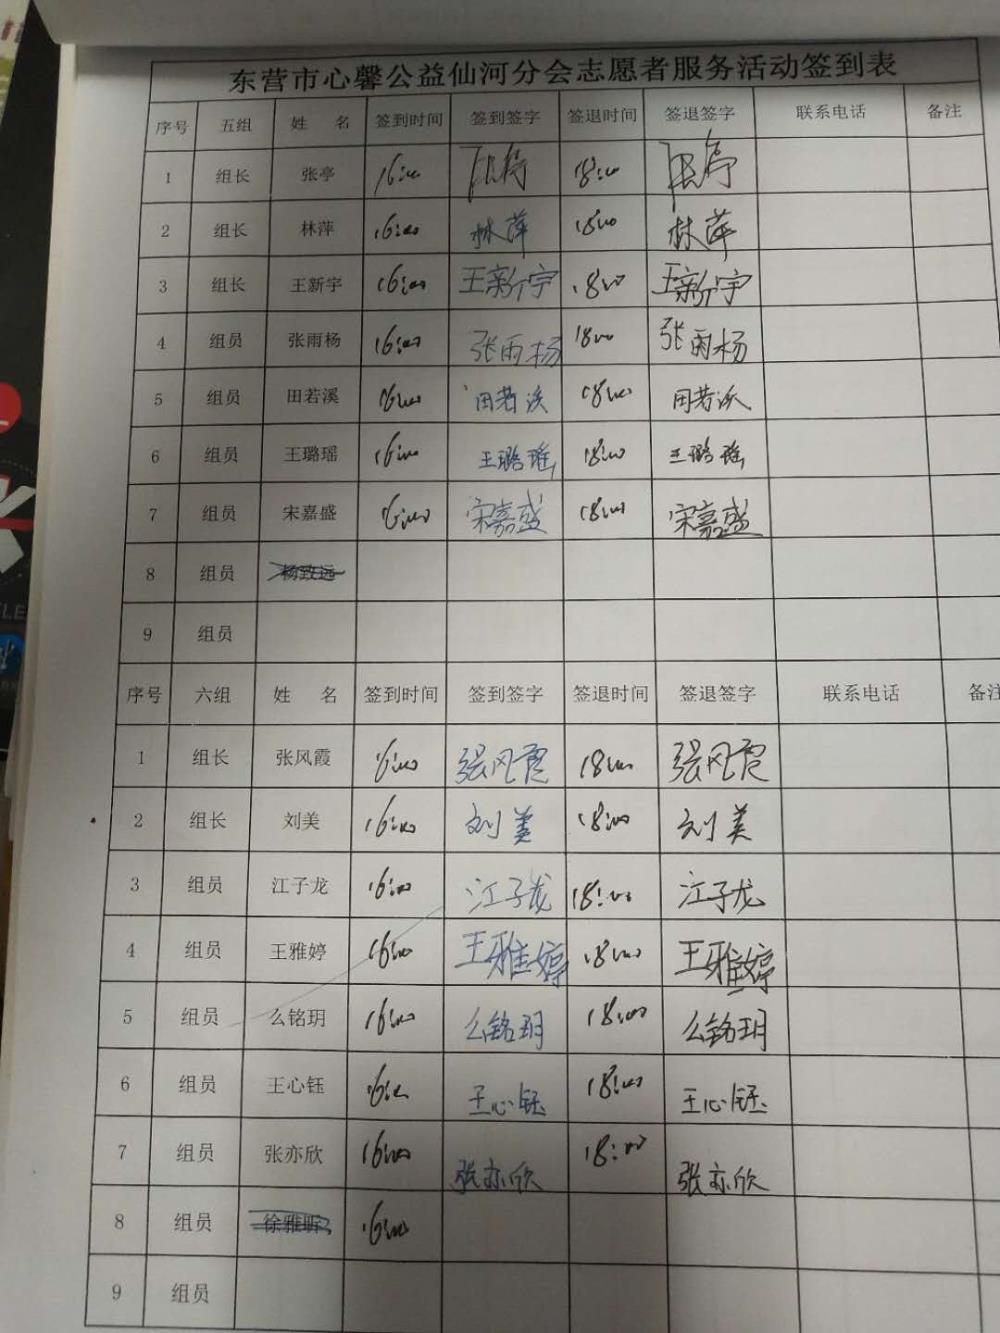 东营市心馨公益仙河分会志愿者服务活动签到表
序号 五组 姓 名 签到时间 签到签字 签退时间 签退签字 联系电话 备注
1 组长 张亭 16:00 张婷 18:00 张婷
2 组长 林萍 16:00 林萍 18:00 林萍
3 组长 王新宇 16:00 王新宇 18:00 王新宇
4 组员 张雨杨 16:00 张雨杨 18:00 张雨杨
5 组员 田若溪 16:00 田若溪 18:00 田若溪
6 组员 王璐瑶 16:00 王璐瑶 18:00 王璐瑶
7 组员 宋嘉盛 16:00 宋嘉盛 18:00 宋嘉盛
8 组员 杨致远
9 组员
序号 六组 姓 名 签到时间 签到签字 签退时间 签退签字 联系电话 备注
1 组长 张风霞 16:00 张风霞 18:00 张风霞
2 组长 刘美 16:00 刘美 18:00 刘美
3 组员 江子龙 16:00 江子龙 18:00 江子龙
4 组员 王雅婷 16:00 王雅婷 18:00 王雅婷
5 组员 么铭玥 16:00 么铭玥 18:00 么铭玥
6 组员 王心钰 16:00 王心钰 18:00 王心钰
7 组员 张亦欣 16:00 张亦欣 18:00 张亦欣
8 组员 徐雅昕 16:00
9 组员